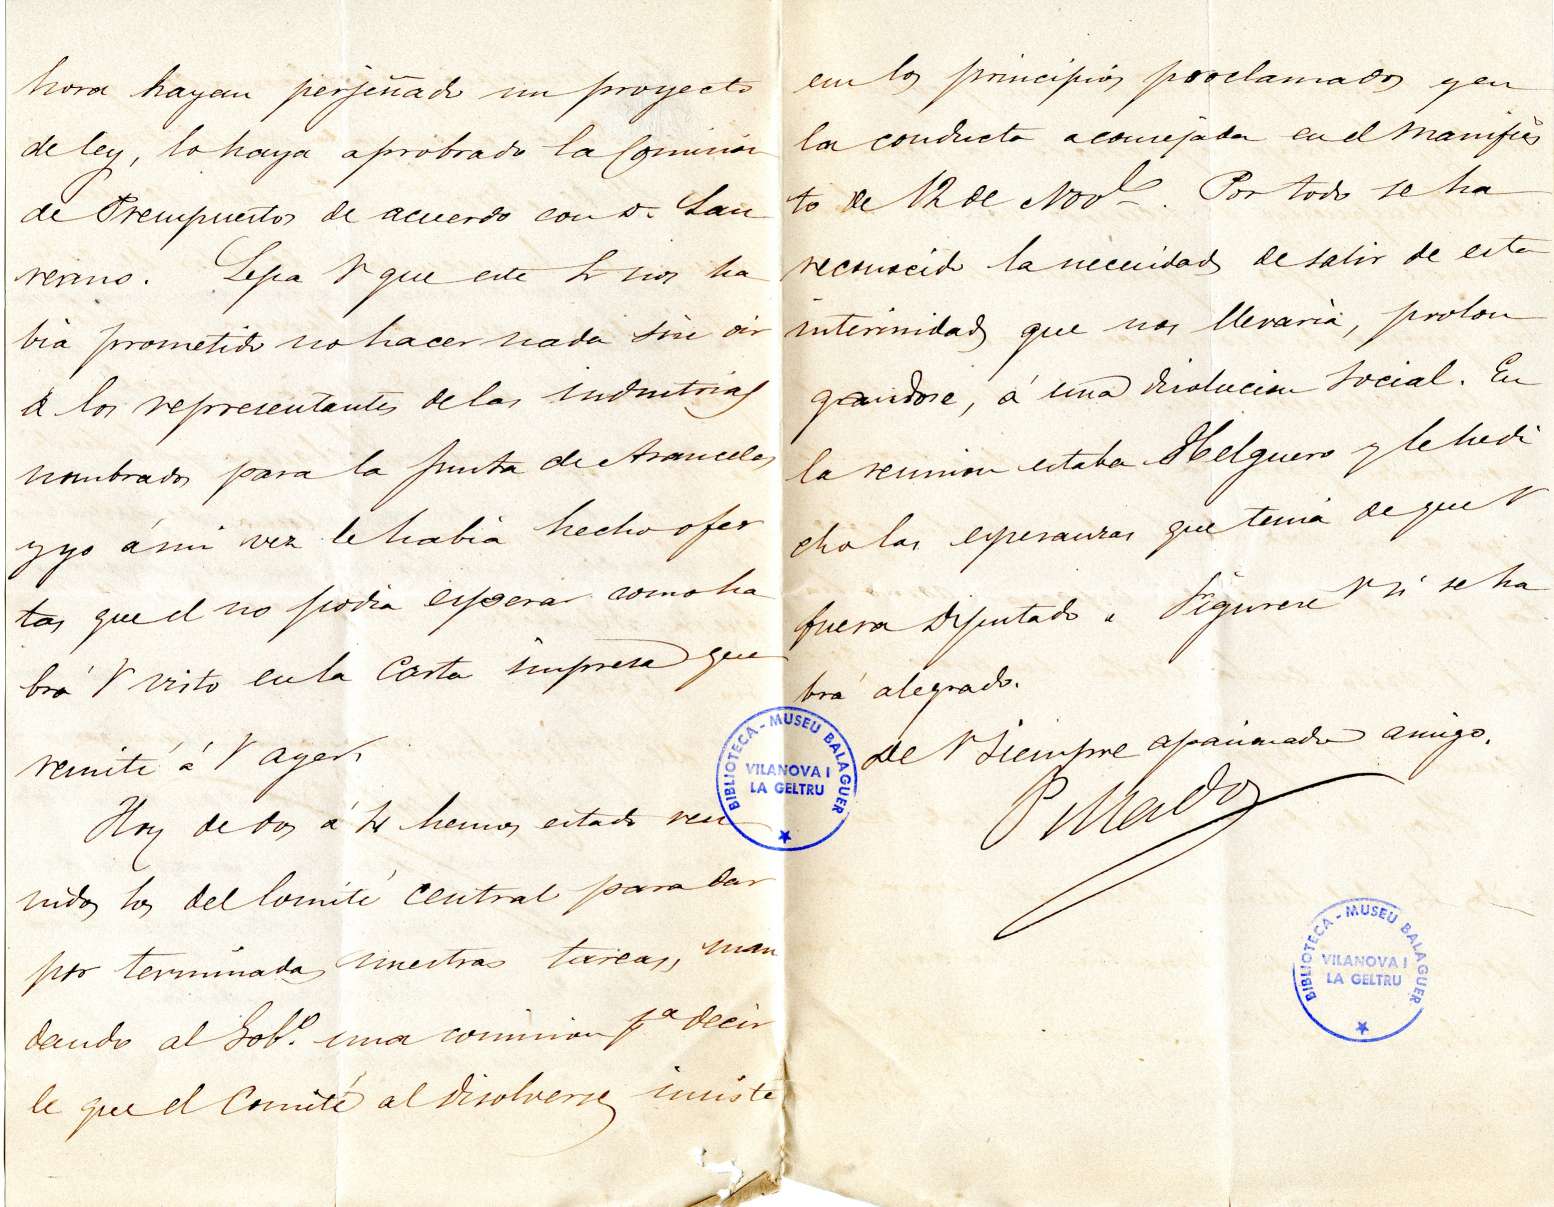 hora hayan perjeñado un proyecto
de ley, lo haya aprobrado la Comision
de Presupuestos de acuerdo con
verino. Sepa V que este Sr nos ha
bia prometido no hacer nada sin oir
á los representantes de las industrias
nombrados para la Junta de Aranceles
y yo á mi vez le habia hecho ofer
tas que el no podia esperar como ha
brá V visto en la Carta impresa que
remití á V ayer.
Hoy de dos á 4 hemos estado reu
nidos los del Comité central para dar
por terminadas nuestras tareas, man
dando al Gobº. una comision pª decir
le que el Comité al disolverse insiste
en los principios proclamados y en
la conducta aconsejada en el Manifies
to de 12 de Novᵉ. Por todo se ha
reconocido la necesidad de salir de esta
interinidad que nos llevaria, prolon
gandose, á una disolucion social. En
la reunion estaba Helguero y le he di
cho las esperanzas que tenia de que V
fuera Diputado. Figurese V si se ha
brá alegrado.
de V siempre apasionado amigo.
P Mador
BIBLIOTECA - MUSEU BALAGUER
VILANOVA I
LA GELTRU
BIBLIOTECA - MUSEU BALAGUER
VILANOVA I
LA GELTRU